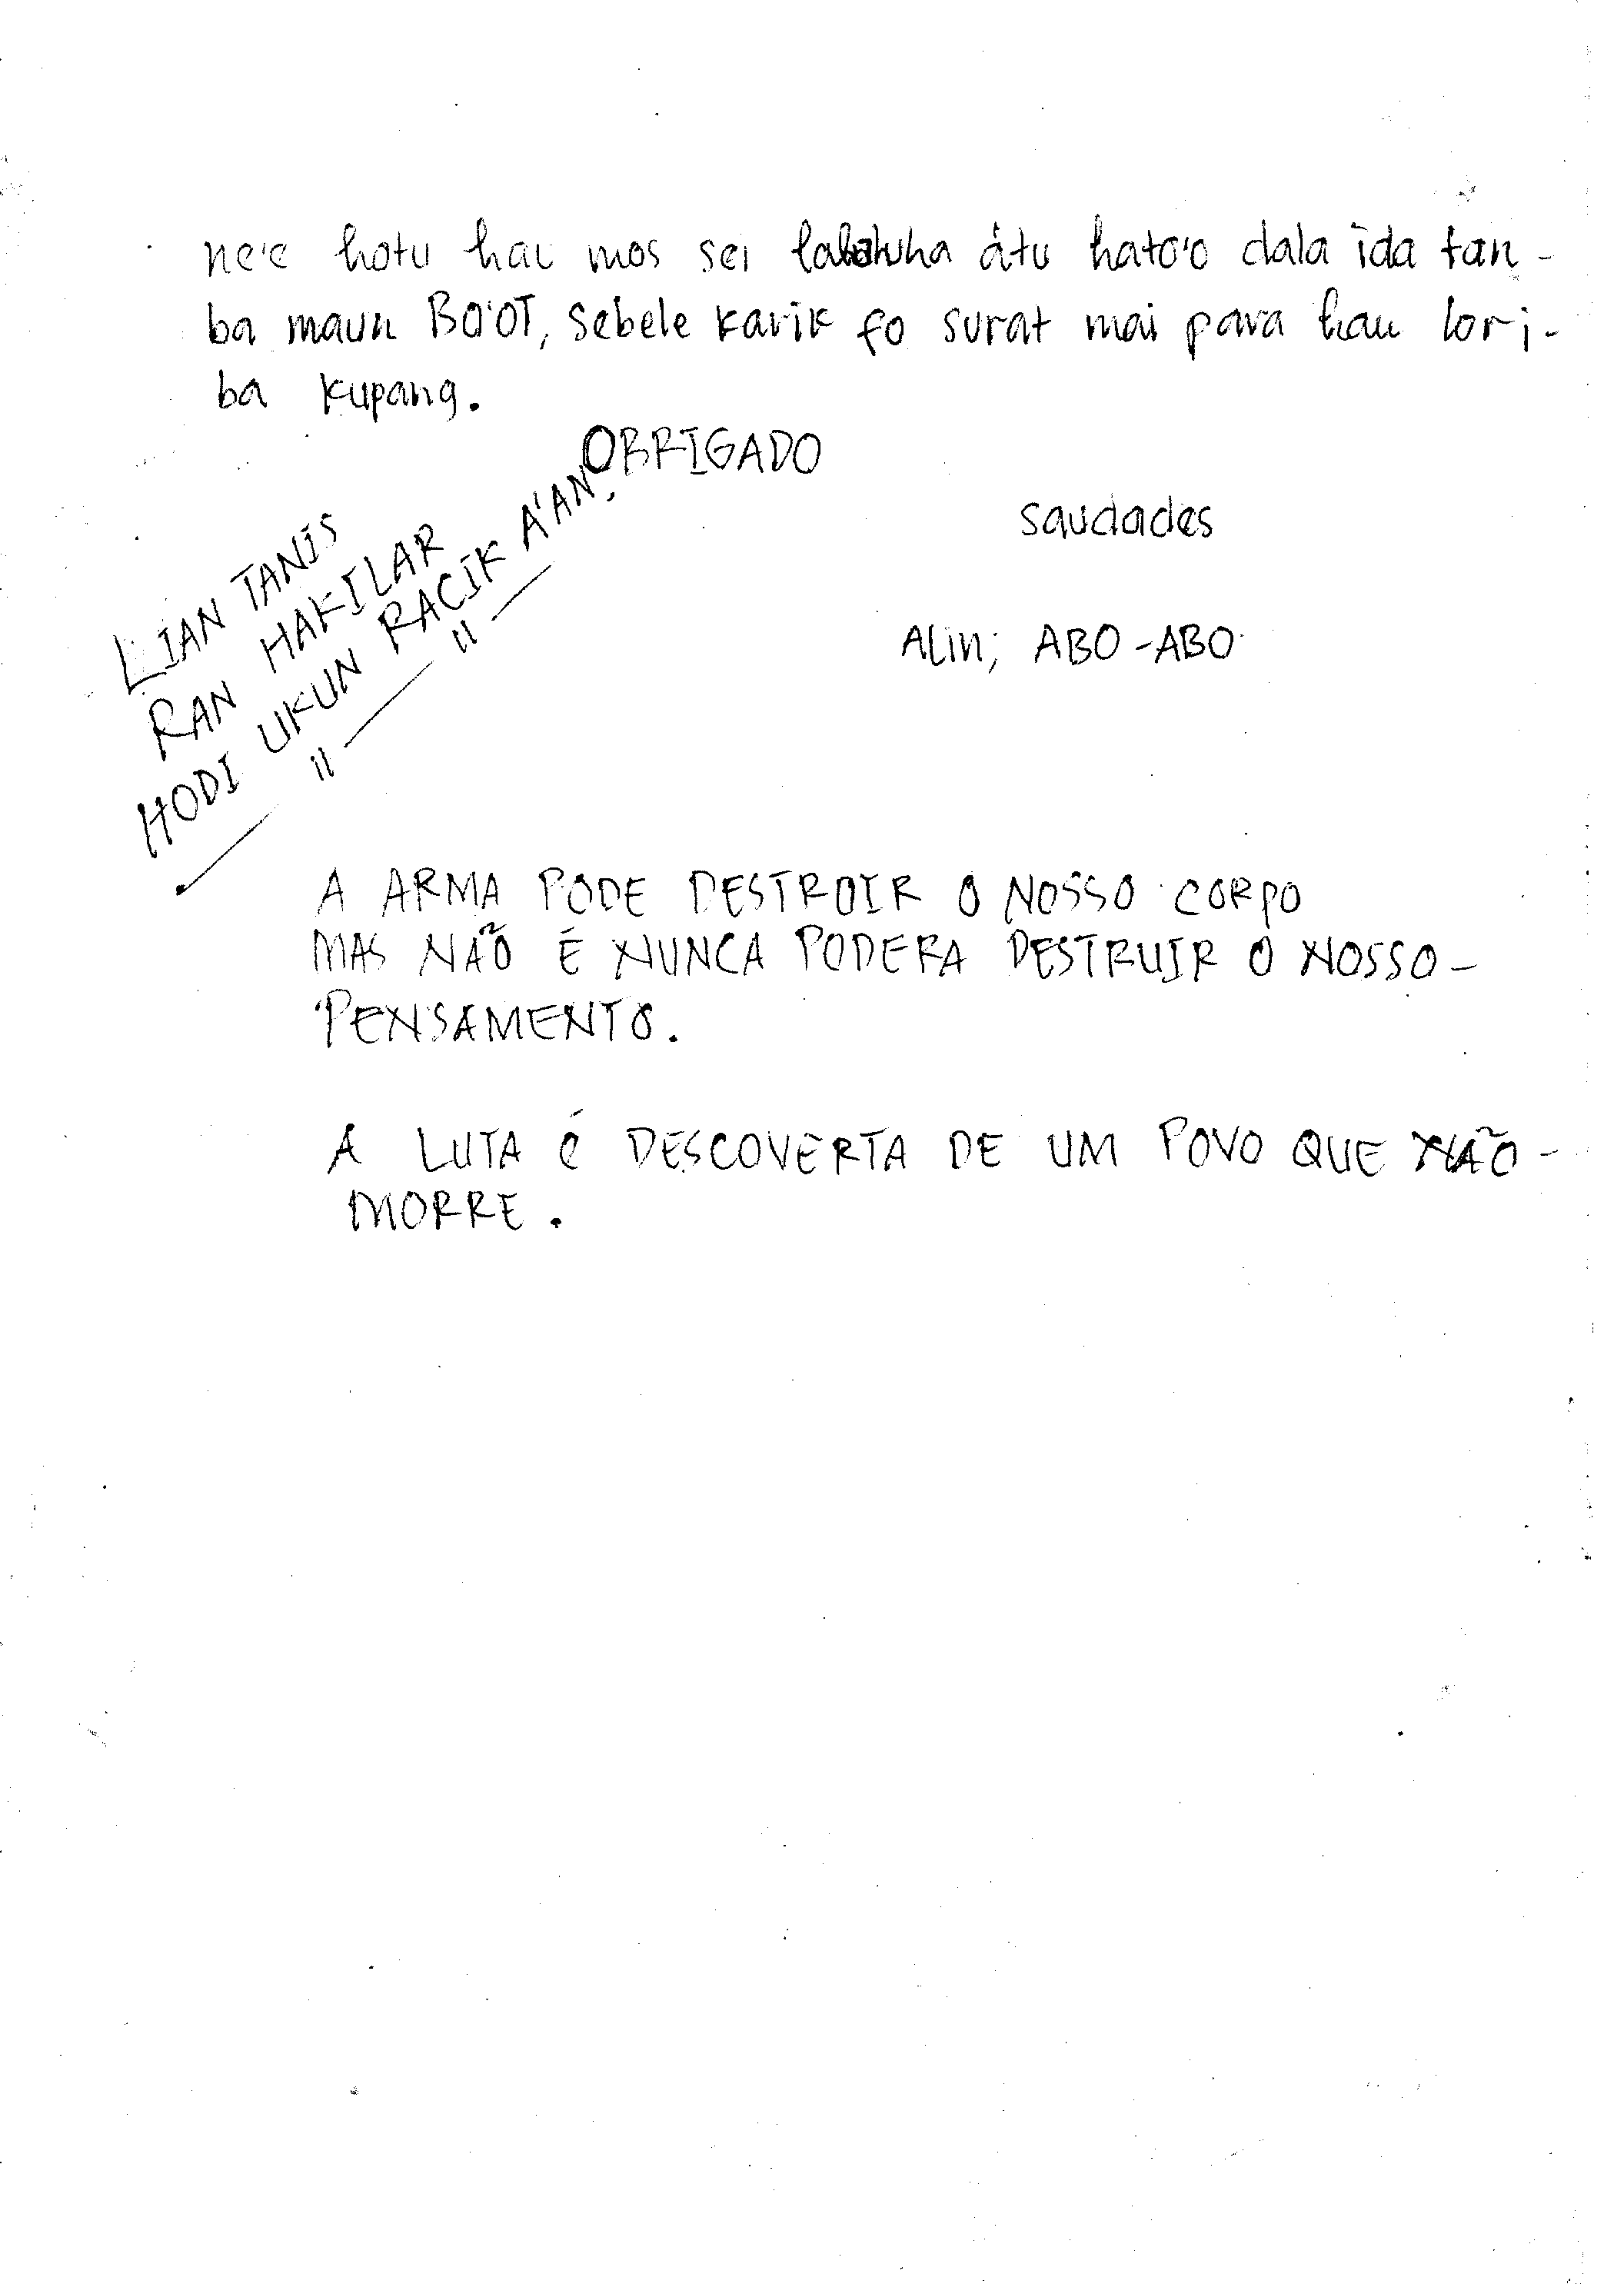 ne'e hotu hau mos sei átu hato'o dala ida tan-
ba maun BO'OT, sebele karik fo surat mai para hau lori-
ba kupang.
OBRIGADO
saudades
Alin; ABO-ABO
LIAN TANIS
RAN HAKILAR
HODI UKUN RACIK A'AN.
A ARMA PODE DESTROIR O NOSSO CORPO
MAS NÃO É NUNCA PODERA DESTRUIR O NOSSO-
PENSAMENTO.
A LUTA É DESCOVERTA DE UM POVO QUE NÃO-
MORRE.